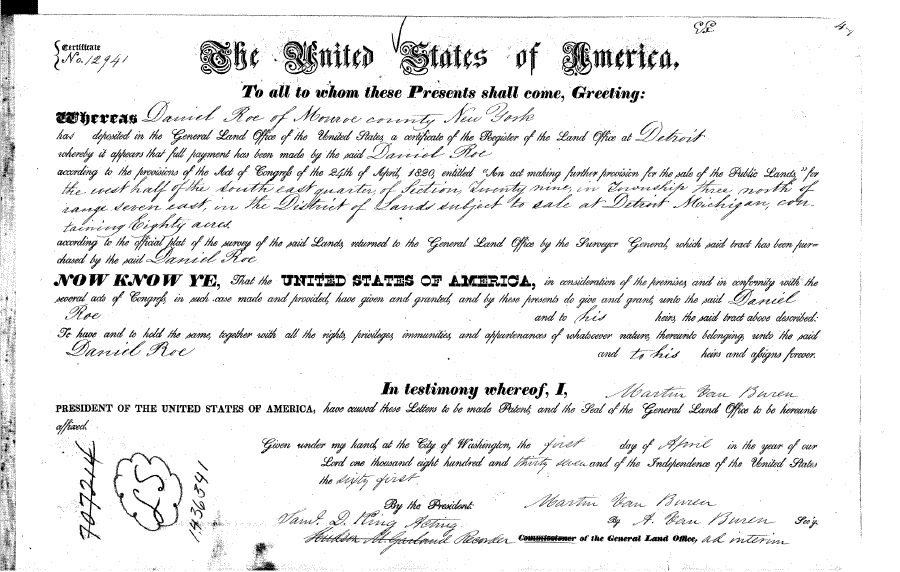 4
Certificate
No. 12941
The United States of America,
To all to whom these Presents shall come, Greeting:
Whereas Daniel Roe of Monroe county New York
has deposited in the General Land Office of the United States, a certificate of the Register of the Land Office at Detroit
whereby it appears that full payment has been made by the said Daniel Roe
according to the provisions of the Act of Congress of the 24th of April, 1820, entitled "An act making further provision for the sale of the Public Lands," for
the west half of the south east quarter, of Section, twenty nine, in Township three, north of
range seven east, in the District of Lands subject to sale at Detroit Michigan, con-
taining Eighty acres
according to the official plat of the survey of the said Lands, returned to the General Land Office by the Surveyor General, which said tract has been pur-
chased by the said Daniel Roe
NOW KNOW YE, That the UNITED STATES OF AMERICA, in consideration of the premises, and in conformity with the
several acts of Congress, in such case made and provided, have given and granted, and by these presents do give and grant, unto the said Daniel
Roe and to his heirs, the said tract above described:
To have and to hold the same, together with all the rights, privileges, immunities, and appurtenances of whatsoever nature, thereunto belonging, unto the said
Daniel Roe and to his heirs and assigns forever.
In testimony whereof, I, Martin Van Buren
PRESIDENT OF THE UNITED STATES OF AMERICA, have caused these Letters to be made Patent, and the Seal of the General Land Office to be hereunto
affixed.
Given under my hand, at the City of Washington, the first day of April in the year of our
Lord one thousand eight hundred and thirty seven and of the Independence of the United States
the sixty first
By the President: Martin Van Buren
By A. Van Buren Sec'y.
Saml. D. King Acting
Hudson M. Garland Recorder Commissioner of the General Land Office, ad interim
707214
LS
1436341